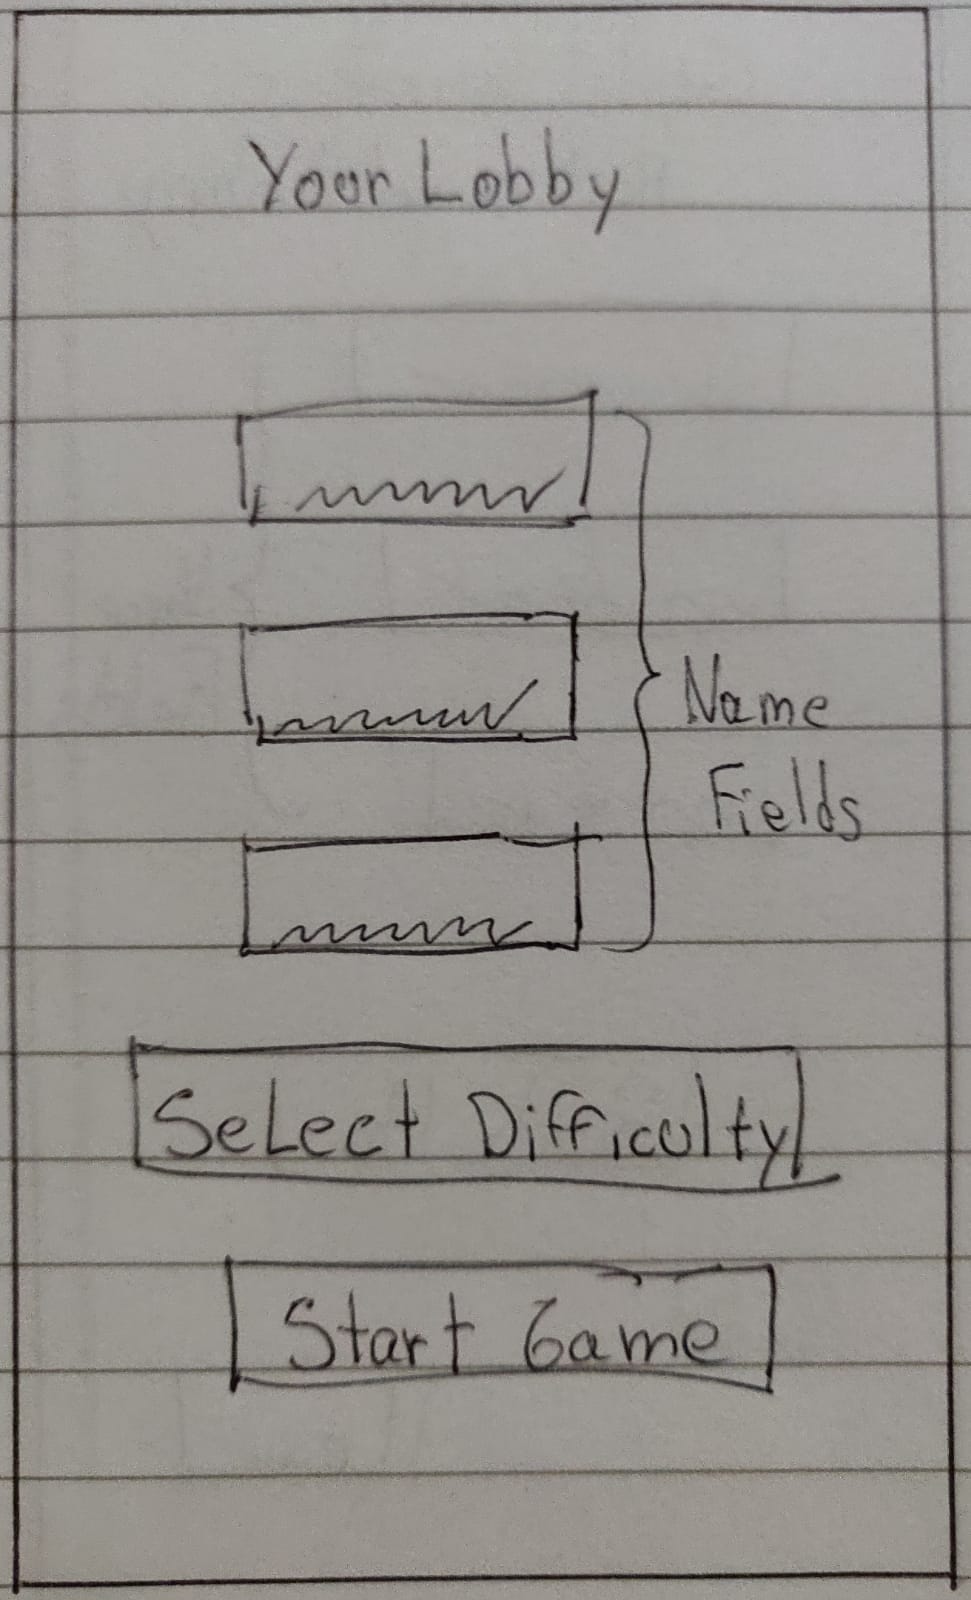 Your Lobby
Name
Fields
Select Difficulty
Start Game